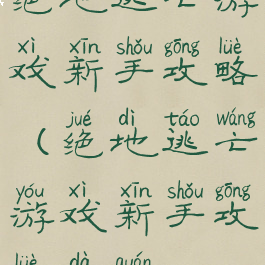 绝地逃亡游
xì xīn shǒu gōng lüè
戏新手攻略
jué dì táo wáng
（绝地逃亡
yóu xì xīn shǒu gōng
游戏新手攻
lüè dà quán